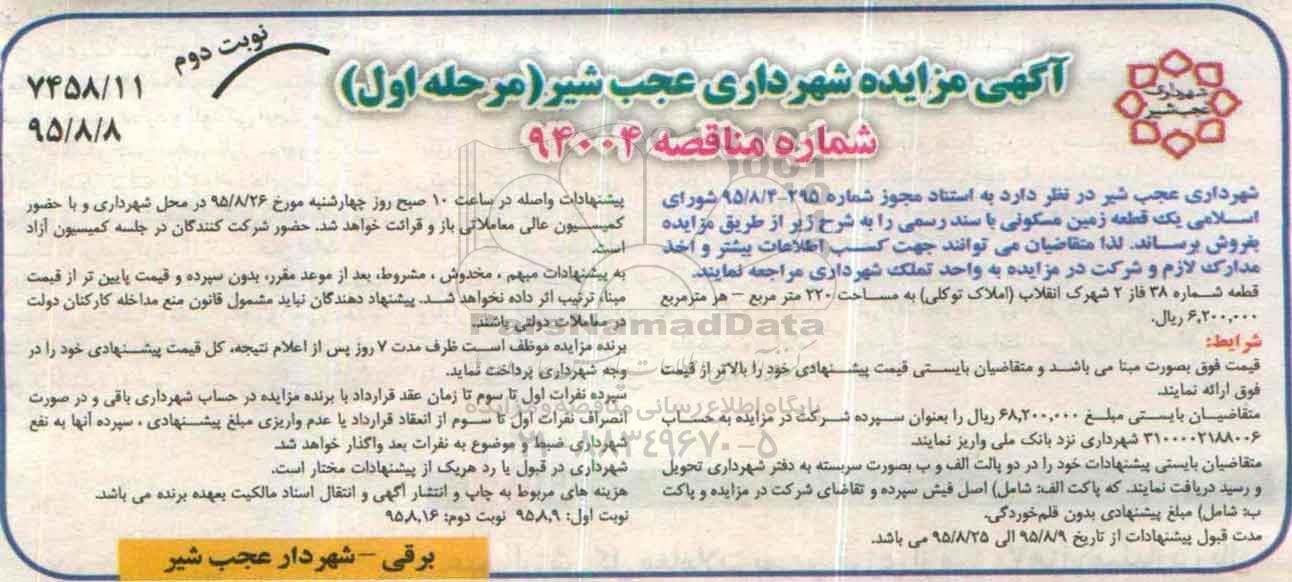 آگهی مزایده شهرداری عجب شیر (مرحله اول)
شماره مناقصه ۹۴۰۰۴
نوبت دوم
۷۴۵۸/۱۱
۹۵/۸/۸
شهرداری
عجب شیر
شهرداری عجب شیر در نظر دارد به استناد مجوز شماره ۲۹۵-۹۵/۸/۴ شورای
اسلامی یک قطعه زمین مسکونی با سند رسمی را به شرح زیر از طریق مزایده
بفروش برساند. لذا متقاضیان می توانند جهت کسب اطلاعات بیشتر و اخذ
مدارک لازم و شرکت در مزایده به واحد تملک شهرداری مراجعه نمایند.
قطعه شماره ۳۸ فاز ۲ شهرک انقلاب (املاک توکلی) به مساحت ۲۲۰ متر مربع – هر مترمربع
۶,۲۰۰,۰۰۰ ریال.
شرایط:
قیمت فوق بصورت مبنا می باشد و متقاضیان بایستی قیمت پیشنهادی خود را بالاتر از قیمت
فوق ارائه نمایند.
متقاضیان بایستی مبلغ ۶۸,۲۰۰,۰۰۰ ریال را بعنوان سپرده شرکت در مزایده به حساب
۳۱۰۰۰۰۲۱۸۸۰۰۶ شهرداری نزد بانک ملی واریز نمایند.
متقاضیان بایستی پیشنهادات خود را در دو پالت الف و ب بصورت سربسته به دفتر شهرداری تحویل
و رسید دریافت نمایند. که پاکت الف: شامل) اصل فیش سپرده و تقاضای شرکت در مزایده و پاکت
ب: شامل) مبلغ پیشنهادی بدون قلم‌خوردگی.
مدت قبول پیشنهادات از تاریخ ۹۵/۸/۹ الی ۹۵/۸/۲۵ می باشد.
پیشنهادات واصله در ساعت ۱۰ صبح روز چهارشنبه مورخ ۹۵/۸/۲۶ در محل شهرداری و با حضور
کمیسیون عالی معاملاتی باز و قرائت خواهد شد. حضور شرکت کنندگان در جلسه کمیسیون آزاد
است.
به پیشنهادات مبهم ، مخدوش ، مشروط، بعد از موعد مقرر، بدون سپرده و قیمت پایین تر از قیمت
مبنا، ترتیب اثر داده نخواهد شد. پیشنهاد دهندگان نباید مشمول قانون منع مداخله کارکنان دولت
در معاملات دولتی باشند.
برنده مزایده موظف است ظرف مدت ۷ روز پس از اعلام نتیجه، کل قیمت پیشنهادی خود را در
وجه شهرداری پرداخت نماید.
سپرده نفرات اول تا سوم تا زمان عقد قرارداد با برنده مزایده در حساب شهرداری باقی و در صورت
انصراف نفرات اول تا سوم از انعقاد قرارداد یا عدم واریزی مبلغ پیشنهادی ، سپرده آنها به نفع
شهرداری ضبط و موضوع به نفرات بعد واگذار خواهد شد.
شهرداری در قبول یا رد هریک از پیشنهادات مختار است.
هزینه های مربوط به چاپ و انتشار آگهی و انتقال اسناد مالکیت بعهده برنده می باشد.
نوبت اول: ۹۵,۸,۹ نوبت دوم: ۹۵,۸,۱۶
برقی – شهردار عجب شیر
ParsNamadData
پایگاه اطلاع رسانی مناقصه و مزایده
۰۲۱-۸۸۳۴۹۶۷۰-۵